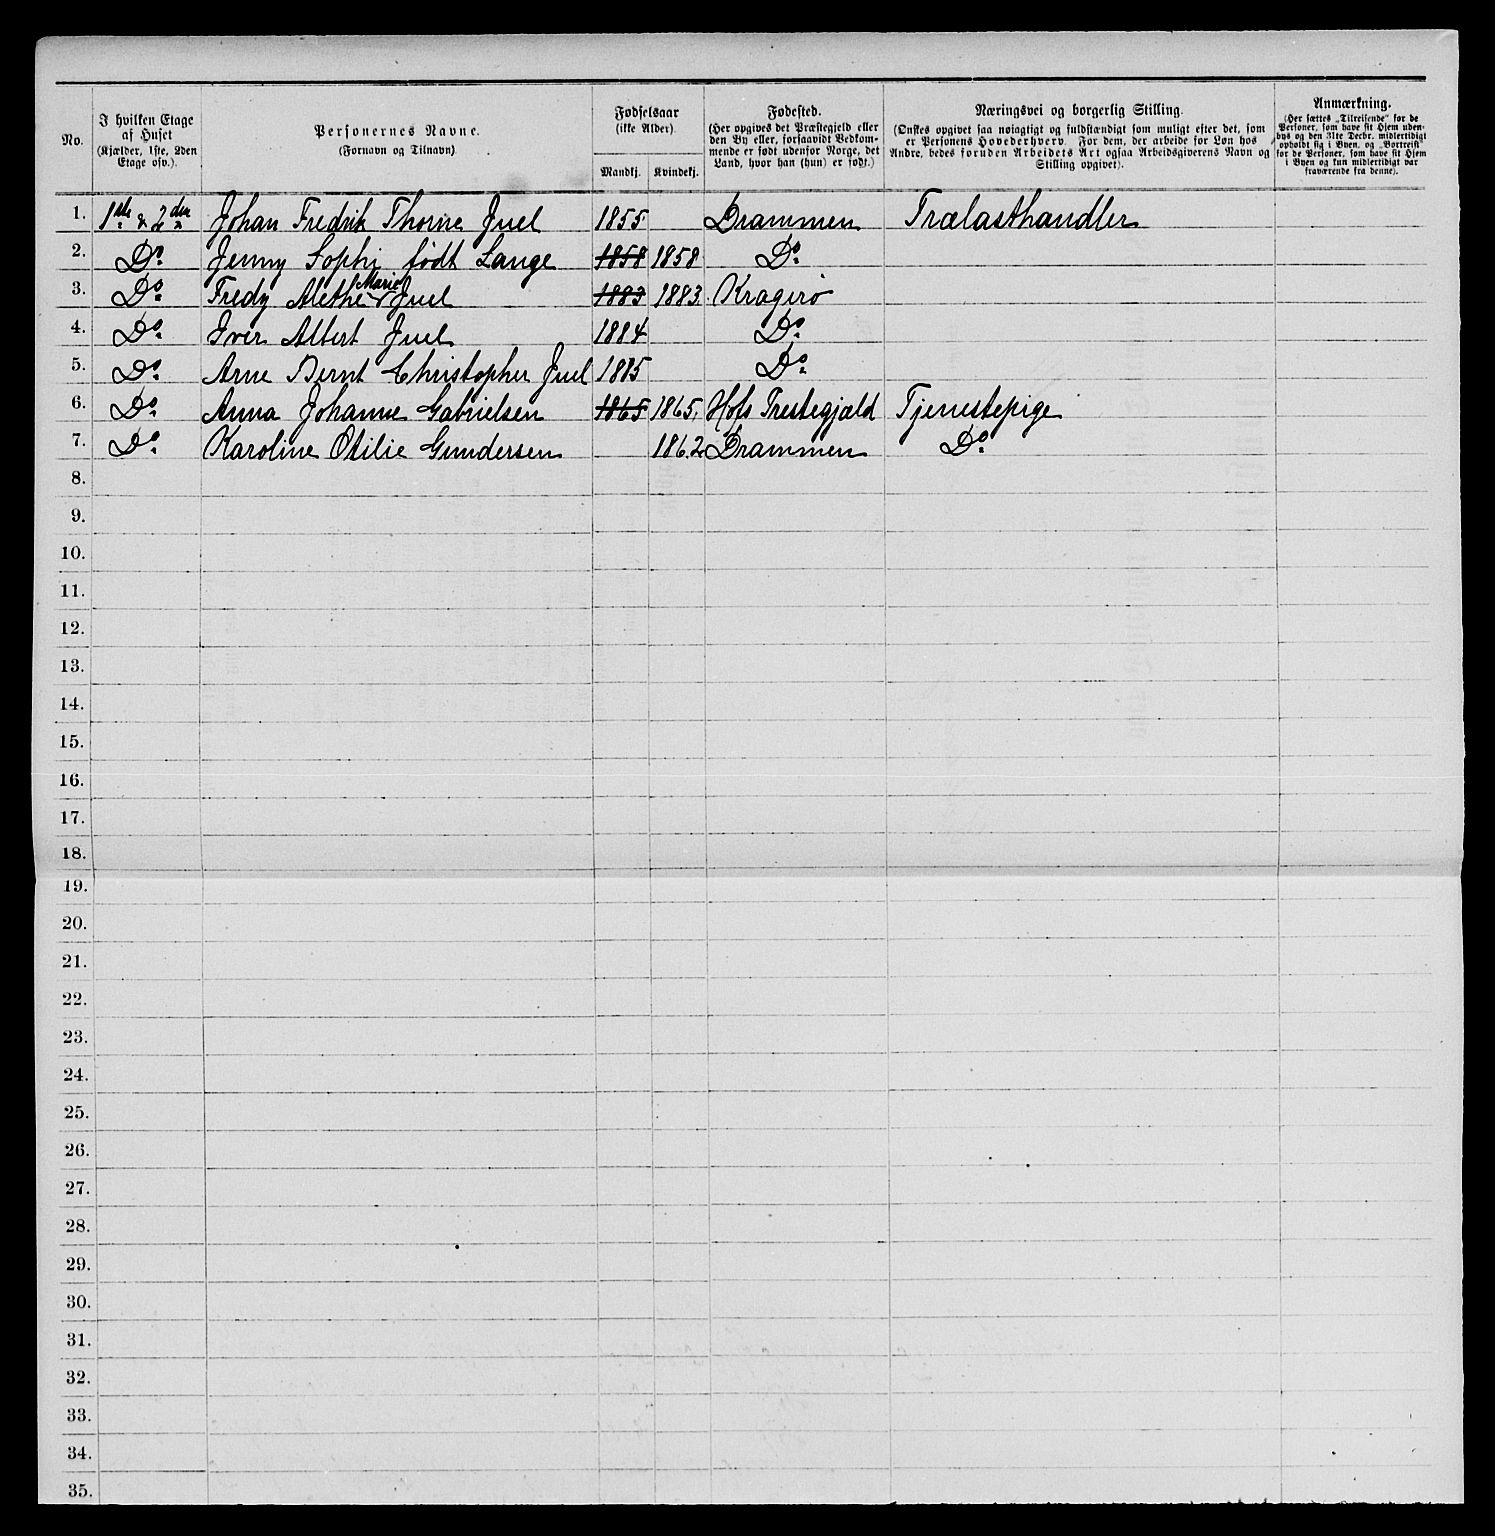 No.
I hvilken Etage af Huset (Kjælder, 1ste, 2den Etage osv.).
Personernes Navne. (Fornavn og Tilnavn)
Fødselsaar (ikke Alder)
Mandkj. Kvindekj.
Fødested. (Her opgives det Præstegjeld eller den By eller, forsaavidt Vedkommende er født udenfor Norge, det Land, hvor han (hun) er født.)
Næringsvei og borgerlig Stilling. (Ønskes opgivet saa nøiagtigt og fuldstændigt som muligt efter det, som er Personens Hovederhverv. For dem, der arbeide for Løn hos Andre, bedes foruden Arbeidets Art ogsaa Arbeidsgiverens Navn og Stilling opgivet).
Anmærkning. (Her sættes „Tilreisende“ for de Personer, som have sit Hjem udenbys og den 31te Decbr. midlertidigt opholdt sig i Byen, og „Bortreist“ for de Personer, som have sit Hjem i Byen og kun midlertidigt var fraværende fra denne).
1. 1ste & 2den Johan Fredrik Thorne Juel 1855 Drammen Trælasthandler
2. Do Jenny Sophi født Lange 1858 1858 Do
3. Do Fredy Alethe Marie Juel 1883 1883 Kragerø
4. Do Iver Albert Juel 1884 Do
5. Do Arne Bernt Christopher Juel 1885 Do
6. Do Anna Johanne Gabrielsen 1865 1865, Hofs Prestegjæld Tjenestepige
7. Do Karoline Otilie Gundersen 1862 Drammen Do
8.
9.
10.
11.
12.
13.
14.
15.
16.
17.
18.
19.
20.
21.
22.
23.
24.
25.
26.
27.
28.
29.
30.
31.
32.
33.
34.
35.